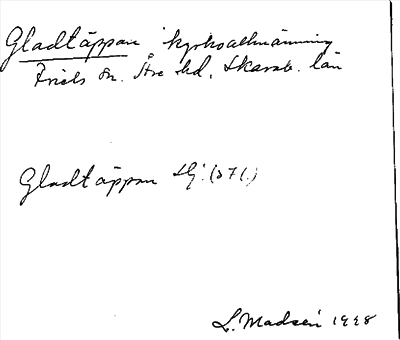 Gladtäppan kyrkoallmänning
Friels sn. Åse hd, Skarab. län
Gladtäppan Lj. (571)
L. Madsén 1998